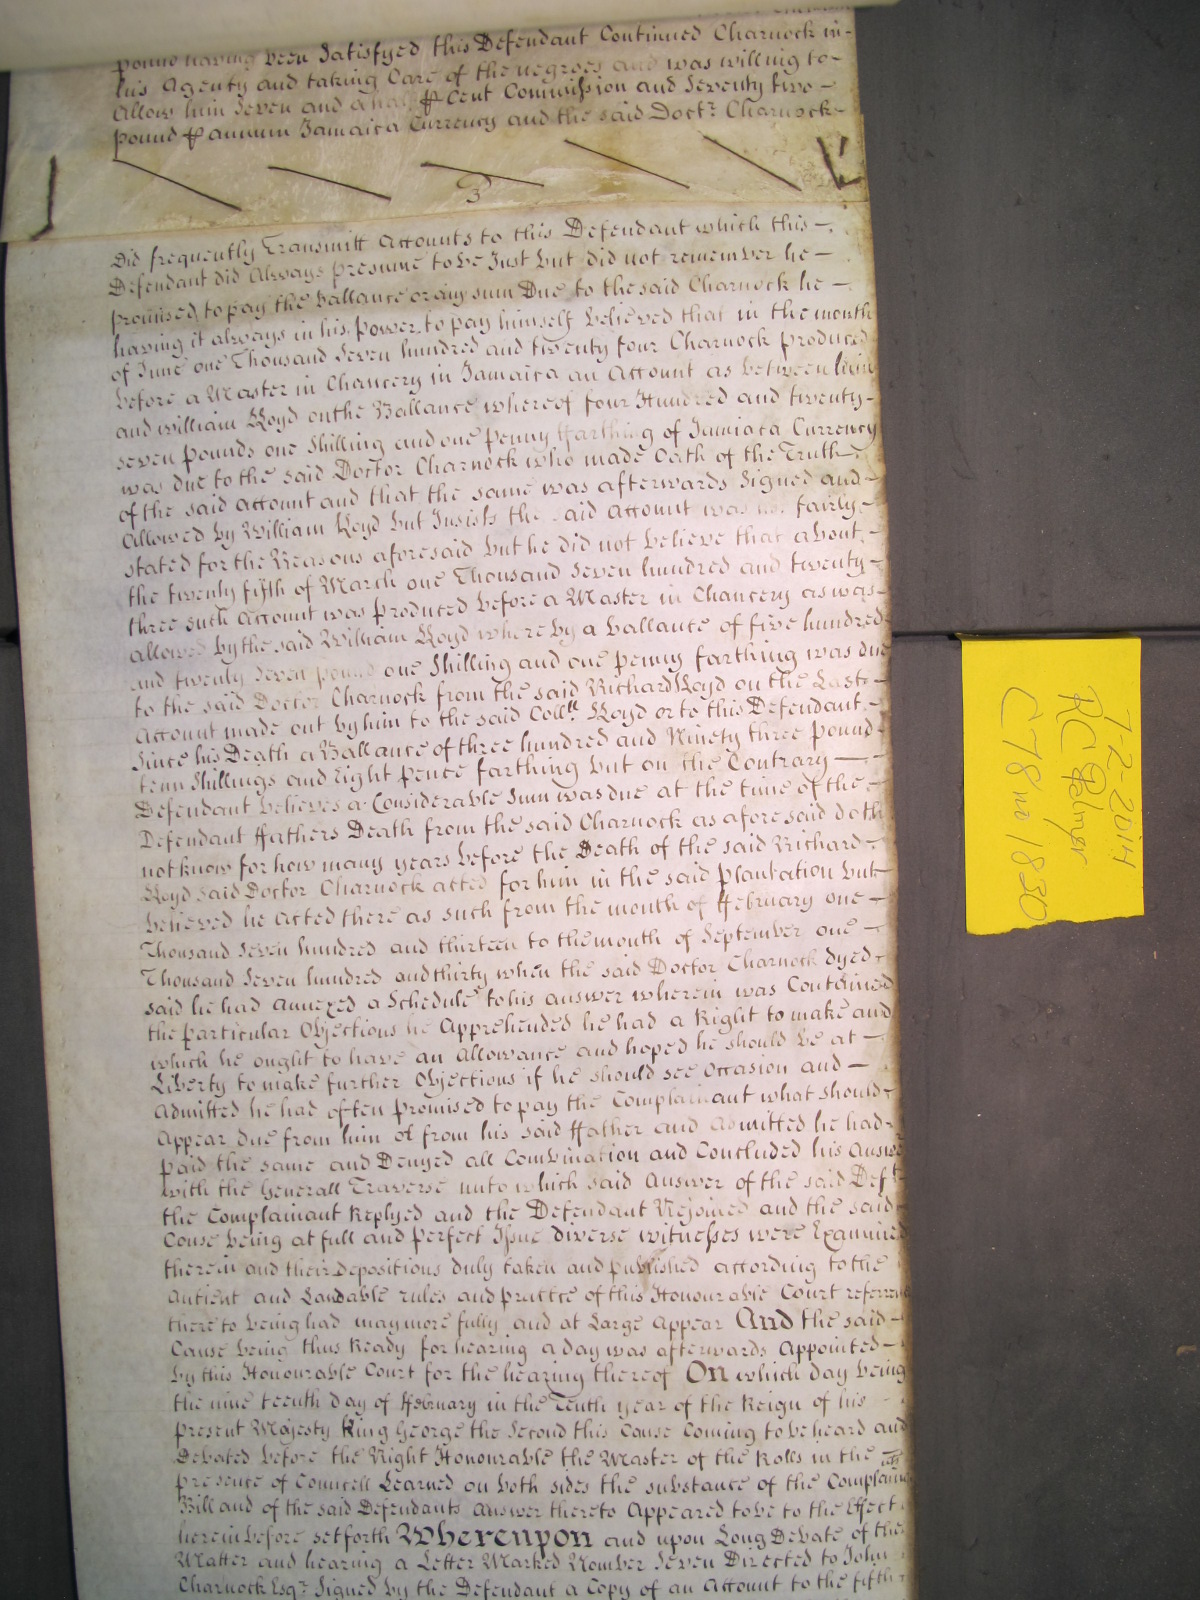 pound having been Satisfyed this Defendant Continued Charnock in-
his Agenty and taking Care of the negroes and was willing to-
Allow him Seven and a half ⅌ Cent Commission and Seventy two-
pound ⅌ annum Jamaica Currency and the said Doctr. Charnock-
3
Did frequently Transmitt Accounts to this Defendant which this-
Defendant did Always presume to be Just but did not remember he-
promised to pay the ballance or any sum Due to the said Charnock he-
having it always in his power to pay himself believed that in the month
of June one Thousand Seven hundred and twenty four Charnock produced
before a Master in Chancery in Jamaica an Account as between him
and William Lloyd on the Ballance whereof four Hundred and twenty-
seven pounds one Shilling and one penny ffarthing of Jamiaca Currency
was due to the said Doctor Charnock who made Oath of the Truth-
of the said Account and that the same was afterwards Signed and-
Allowed by William Lloyd but Insists the said Account was not fairly-
stated for the Reasons aforesaid but he did not believe that about-
the twenty fifth of March one Thousand Seven hundred and twenty-
three such Account was produced before a Master in Chancery as was-
allowed by the said William Lloyd whereby a ballance of five hundred
and twenty Seven pound one Shilling and one penny farthing was due
to the said Doctor Charnock from the said Richard Lloyd on the Last-
Account made out by him to the said Colll. Lloyd or to this Defendant-
Since his Death a Ballance of three hundred and Ninety three pound
tenn Shillings and Eight pence farthing but on the Contrary-
Defendant believes a Considerable Sum was due at the time of the-
Defendant ffathers Death from the said Charnock as aforesaid doth
not know for how many years before the Death of the said Richard-
Lloyd said Doctor Charnock acted for him in the said plantation but-
believed he Acted there as such from the month of ffebruary one-
Thousand Seven hundred and thirteen to the month of September one-
Thousand Seven hundred and thirty when the said Doctor Charnock dyed-
said he had Annexed a Schedule to his answer wherein was Contained
the particular Objections he Apprehended he had a Right to make and
which he ought to have an Allowance and hoped he should be at-
Liberty to make further Objections if he should see Occasion and-
Admitted he had often promised to pay the Complainant what should-
Appear due from him or from his said ffather and Admitted he had-
paid the same and Denyed all Combination and Concluded his Answer
with the Generall Traverse unto which said Answer of the said Deft.
the Complainant Replyed and the Defendant Rejoined and the said
Couse being at full and perfect Issue diverse witnesses were Examined
therein and their depositions duly taken and published according to the
Antient and Laudable rules and practice of this Honourable Court referrence
there to being had may more fully and at Large Appear And the said-
Cause being thus Ready for hearing a day was afterwards Appointed-
by this Honourable Court for the hearing thereof On which day being
the nine teenth day of ffebruary in the Tenth year of the Reign of his
present Majesty King George the Second this Cause Coming to be heard and
Debated before the Right Honourable the Master of the Rolls in the
presence of Councell Learned on both sides the substance of the Complainants
Bill and of the said Defendants Answer thereto Appeared to be to the Effect
herein before setforth Whereupon and upon Long Debate of the
Matter and hearing a Letter Marked Number Seven Directed to John
Charnock Esqr. Signed by the Defendant a Copy of an Account to the fifth-
7-2-2014
RC Palmer
C78 no 1830